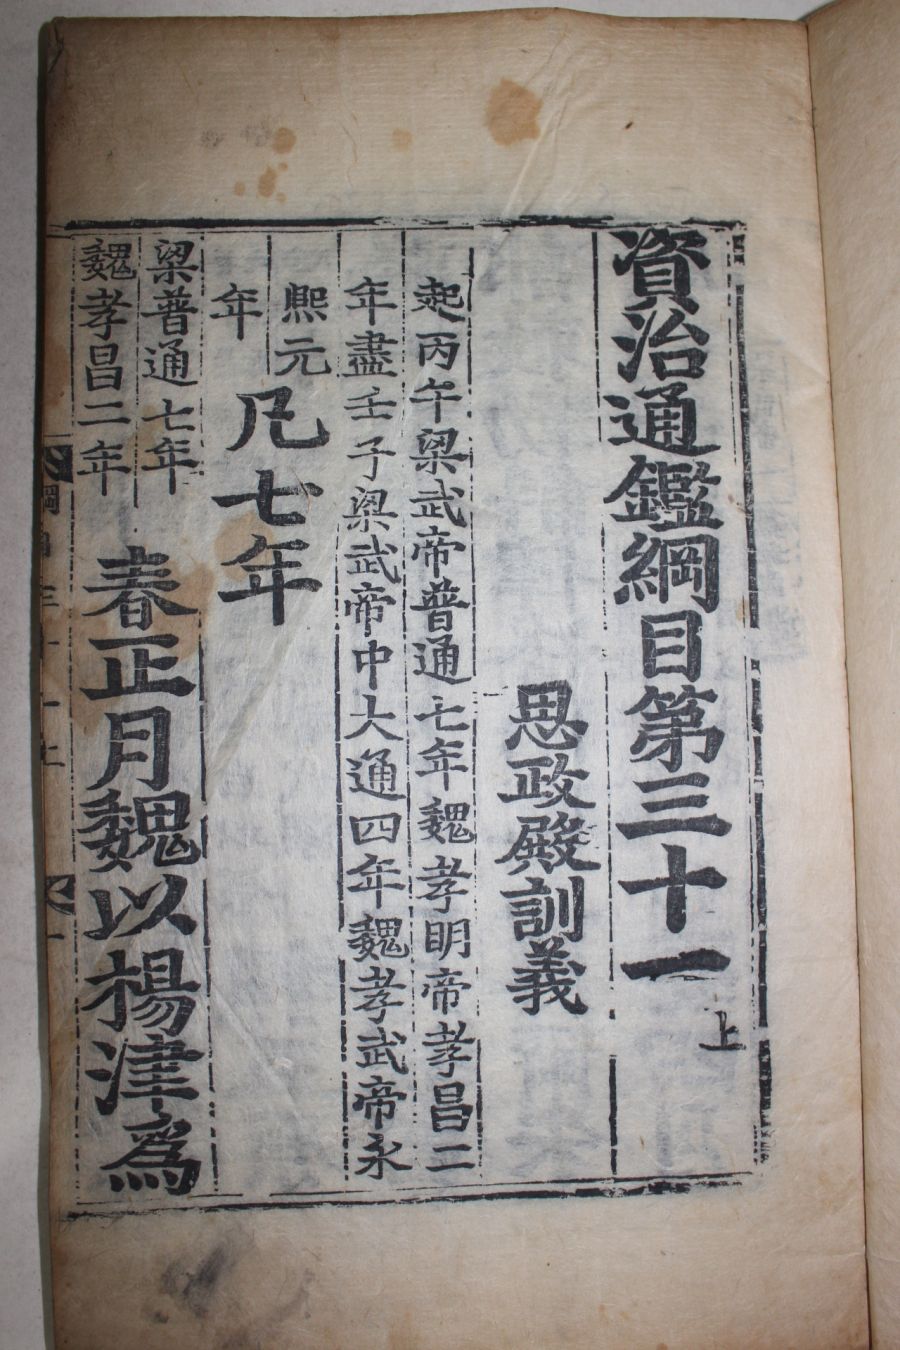 資治通鑑綱目第三十一上
思政殿訓義
起丙午梁武帝普通七年魏孝明帝孝昌二
年盡壬子梁武帝中大通四年魏孝武帝永
熙元
年
凡七年
梁普通七年
魏孝昌二年
春正月魏以楊津爲